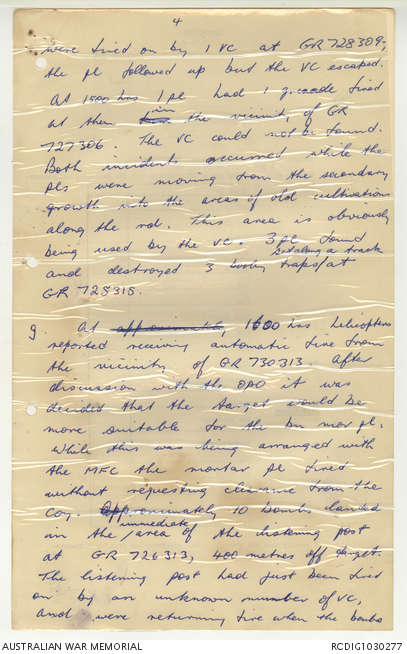 4
were fired on by 1 VC at GR 728309,
the pl followed up but the VC escaped.
At 1500 hrs 1 pl had 1 grenade fired
at them in the vicinity of GR
727306. The VC could not be found.
Both incidents occurred while the
pls were moving from the secondary
growth into the areas of old cultivations
along the rd. This area is obviously
being used by the VC. 3 pl found
and destroyed 3 booby traps/at
GR 728315.
g. At approximately, 1600 hrs helicopters
reported receiving automatic fire from
the vicinity of GR 730313. After
discussion with the it was
decided that the target would be
more suitable for the bn mor pl.
While this was being arranged with
the MFC the mortar pl fired
without requesting clearance from the
coy. Approximately 10 bombs landed
immediate
in the /area of the listening post
at GR 726313, 400 metres off target.
The listening post had just been fired
on by an unknown number of VC,
and were returning fire when the bombs
AUSTRALIAN WAR MEMORIAL
RCDIG1030277